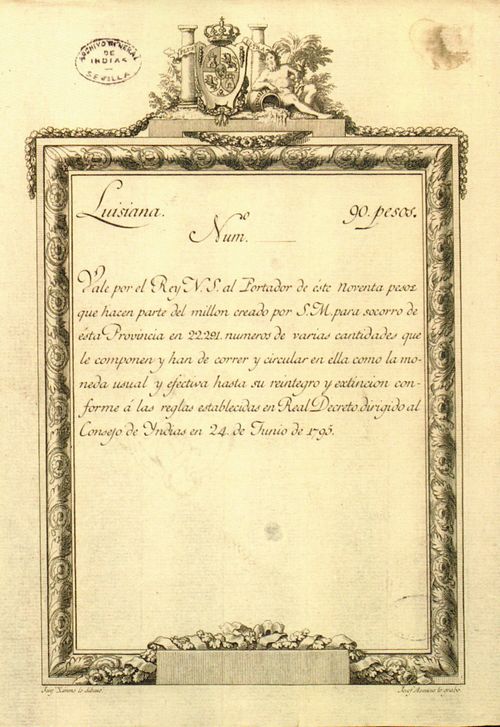 ARCHIVO GENERAL
DE
INDIAS
SEVILLA
Luisiana.
90. pesos.
Num.º
Vale por el Rey N.S. al Portador de éste Noventa pesos
que hacen parte del millon creado por S.M. para socorro de
ésta Provincia en 22.291. numeros de varias cantidades que
le componen y han de correr y circular en ella como la mo-
neda usual y efectiva hasta su reintegro y extincion con-
forme á las reglas establecidas en Real Decreto dirigido al
Consejo de Yndias en 24. de Junio de 1795.
lo dibuxó
Josef Asensio lo grabó